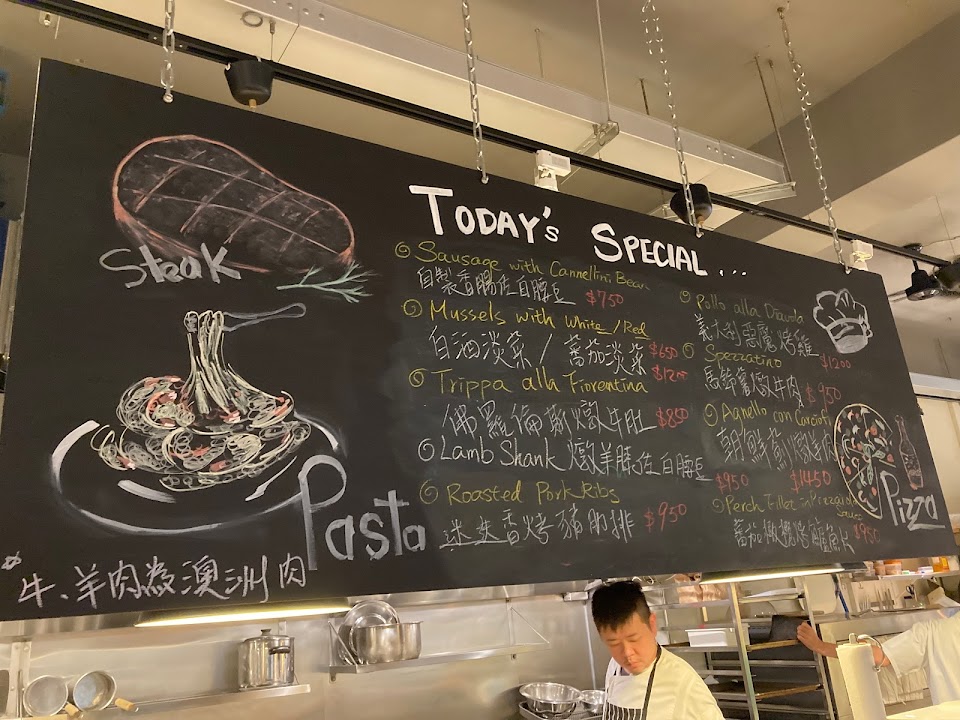 Steak
Pasta
*牛、羊肉為澳洲肉
TODAY'S SPECIAL...
Sausage with Cannellini Bean
自製香腸佐白腰豆 $750
Mussels with White/Red
白酒淡菜/蕃茄淡菜 $650
$1200
Trippa alla Fiorentina
佛羅倫斯燉牛肚 $800
Lamb Shank 燉羊膝佐白腰豆
Roasted Pork Ribs
迷迭香烤豬肋排 $950
Pollo alla Diavola
義大利惡魔烤雞 $1200
Spezzatino
馬鈴薯燉牛肉 $950
Agnello con Carciofi
朝鮮薊燉羊肉
$950 $1450
Perch Fillet in
Sauce
蕃茄橄欖烤鱸魚片 $950
Pizza